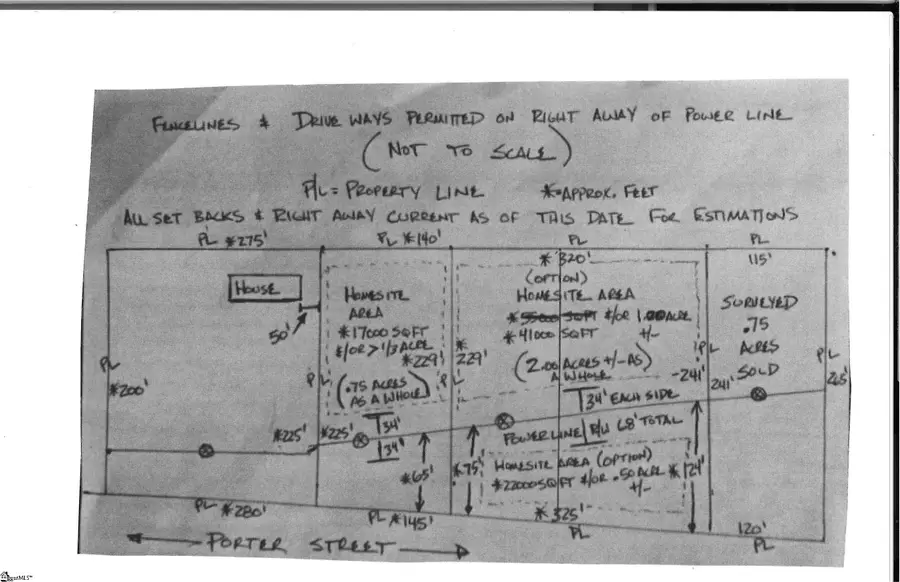 FENCELINES & DRIVE WAYS PERMITTED ON RIGHT AWAY OF POWER LINE
(NOT TO SCALE)
P/L = PROPERTY LINE *=APPROX. FEET
ALL SET BACKS & RIGHT AWAY CURRENT AS OF THIS DATE FOR ESTIMATIONS
PL *275'
PL *140'
PL
PL
HOUSE
50'
PL
*200'
*225'
PL *280'
HOMESITE
AREA
*17000 SQFT
&/OR > 1/3 ACRE
*229'
(.75 ACRES
AS A WHOLE)
PL
PL
*225'
34'
34'
*65'
PL *145'
*320'
(OPTION)
HOMESITE AREA
*55000 SQFT &/OR 1.00 ACRE
*41000 SQFT +/-
*
229'
(2.00 ACRES +/- AS
A WHOLE)
-241'
34' EACH SIDE
POWERLINE R/W 68' TOTAL
*75'
HOMESITE AREA (OPTION)
*22000 SQFT &/OR .50 ACRE
+/-
*124'
*325'
PL
115'
SURVEYED
.75
ACRES
SOLD
PL
241'
PL
265'
120'
PL
PORTER STREET